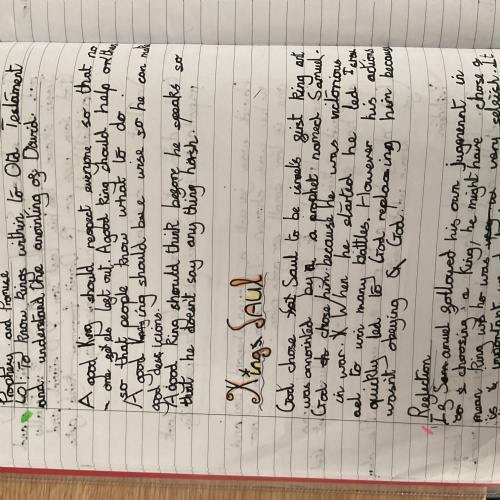 Prophecy and Promise
LO: To know kings within to Old Testament
and understand the anointing of David.
A good king should respect everyone so that no
one feels left out. A good king should help
so that people know what to do
A good king should be wise so he can
good decisions.
A good king should think before he speaks so
that he doesn't say any thing harsh.
Kings Saul
God chose Saul to be israels first King
was anointed by a prophet named Samuel.
God chose him because he was victorious
in war. When he started he led
to win many battles. However his actions
quickly led to God replacing him because
wasn't obeying God!
Reflection
If Samuel followed his own jugement in
choosing a King, he might have chose a
mean King who was very selfish. It
is important